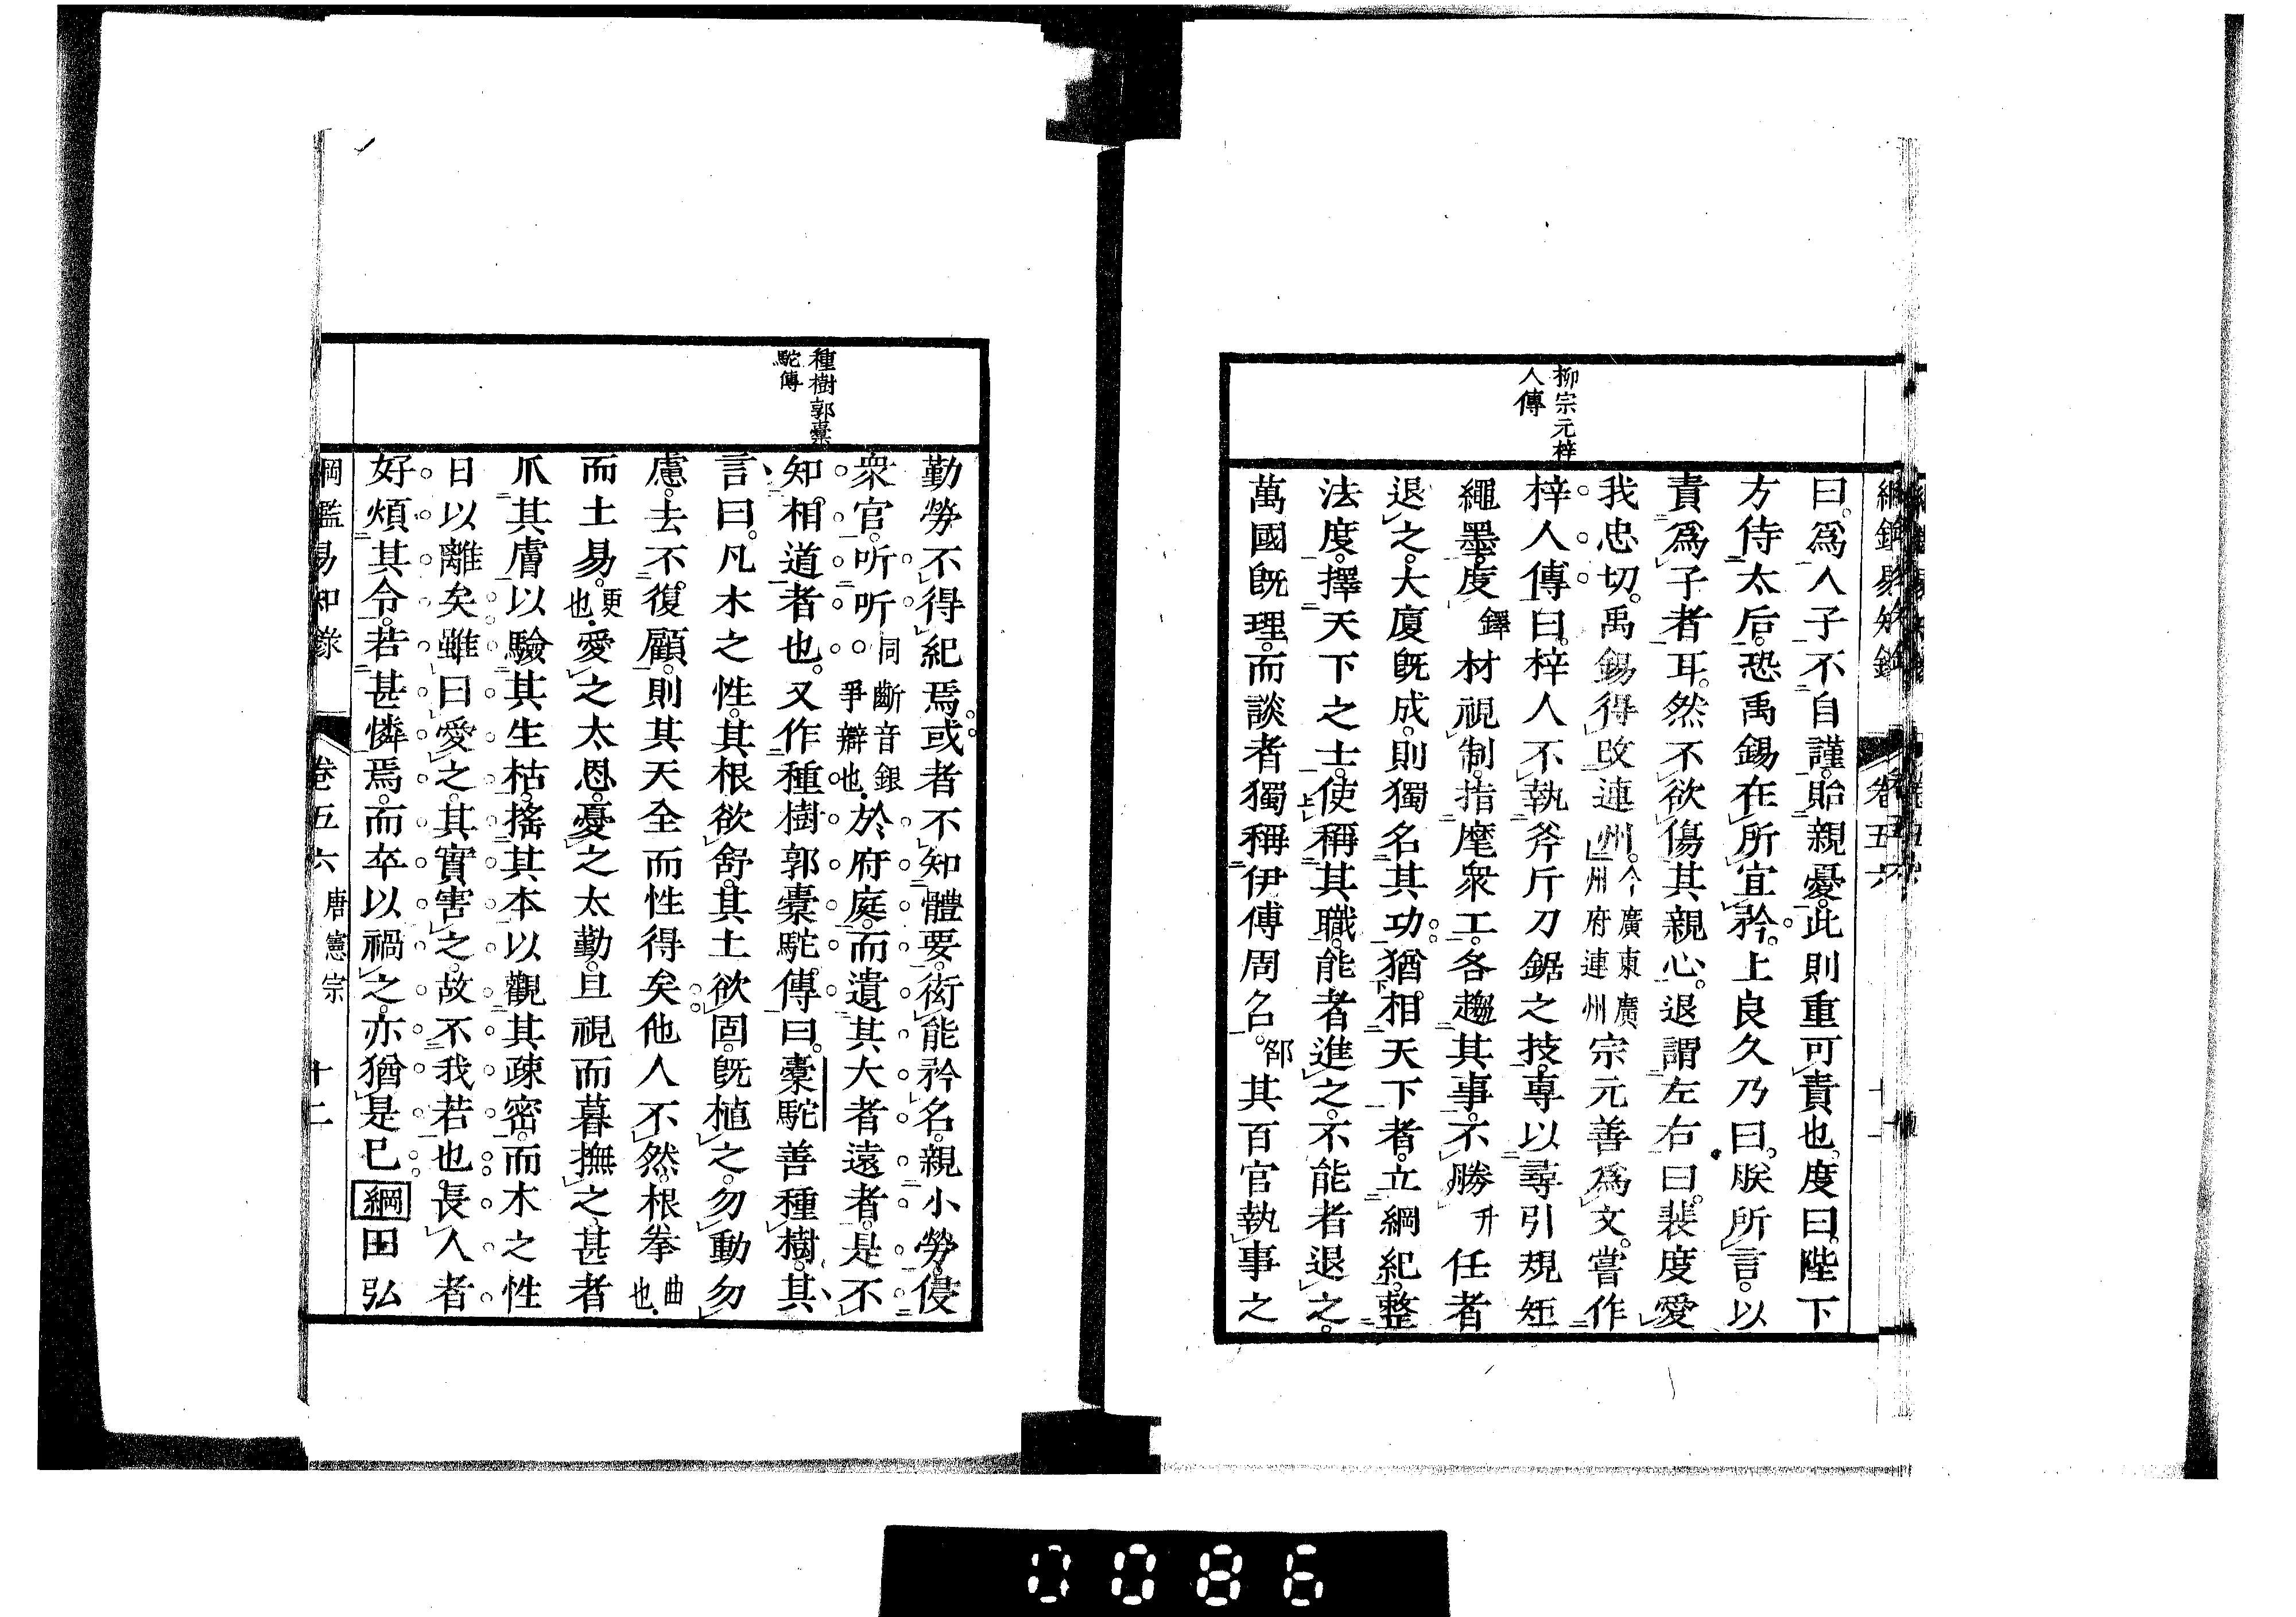 柳宗元梓
人傳
曰。爲人子不自謹。貽親憂。此則重可責也。度曰。陛下
方侍太后。恐禹錫在所宜矜。上良久乃曰。朕所言。以
責爲子者耳。然不欲傷其親心。退謂左右曰。裴度愛
我忠切。禹錫得改連州。今廣東廣州府連州宗元善爲文。嘗作
梓人傳曰。梓人不執斧斤刀鋸之技。專以尋引規矩
繩墨。度鐸材視制。指麾衆工。各趨其事。不勝升任者
退之。大廈既成。則獨名其功。猶相天下者。立綱紀。整
法度。擇天下之士。使稱其職。能者進之。不能者退之。
萬國既理。而談者獨稱伊傅周召。邵其百官執事之
種樹郭橐
駝傳
勤勞不得紀焉。或者不知體要。衒能矜名。親小勞。侵
衆官。听听同齗音銀爭辯也。於府庭。而遺其大者遠者。是不
知相道者也。又作種樹郭橐駝傳曰。橐駝善種樹。其
言曰。凡木之性。其根欲舒。其土欲固。既植之。勿動勿
慮。去不復顧。則其天全而性得矣他人不然。根拳曲也。
而土易。更也。愛之太恩。憂之太勤。旦視而暮撫之。甚者
爪其膚以驗其生枯。搖其本以觀其疎密。而木之性
日以離矣雖曰愛之。其實害之。故不我若也。長人者
好煩其令。若甚憐焉。而卒以禍之。亦猶是已綱田弘
綱鑑易知錄 卷五六 唐憲宗 十二